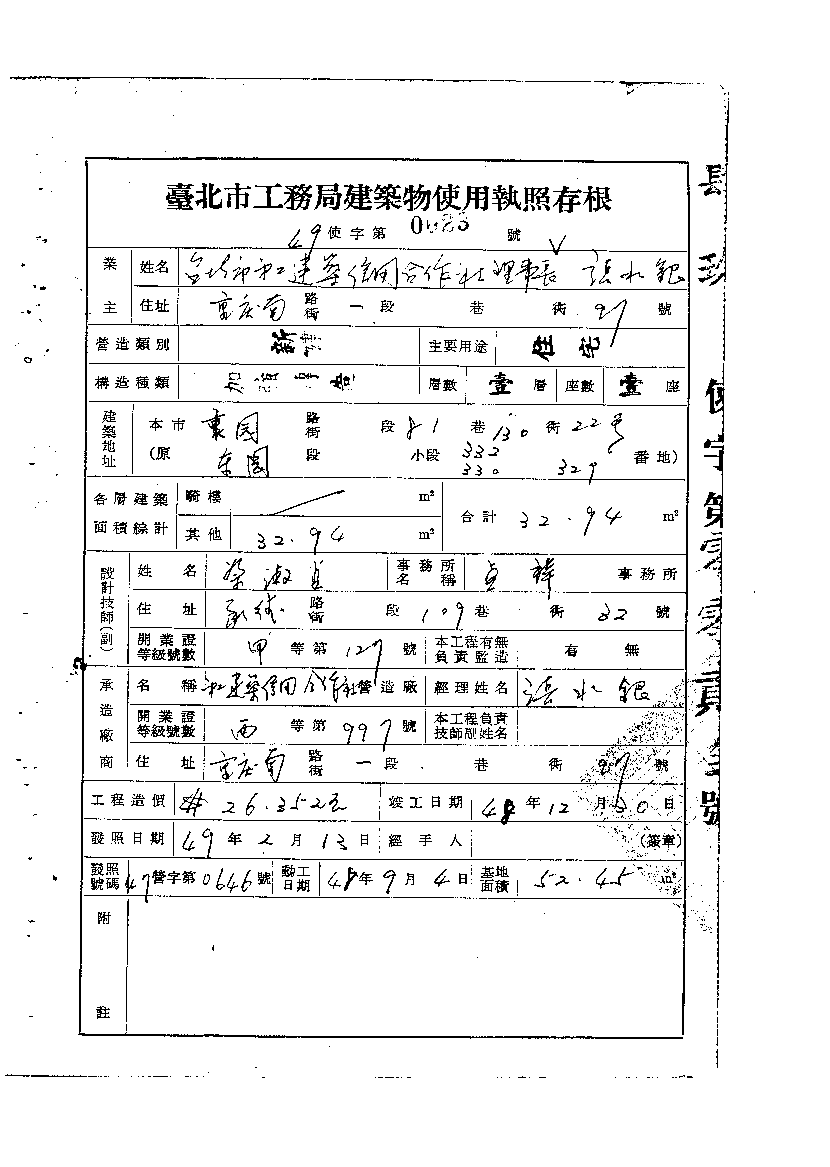 臺北市工務局建築物使用執照存根
49使字第 0023 號
業主 姓名 理事長 張水銀
住址 重庆南 路街 一段 巷 街 97 號
營造類別 新建 主要用途 住宅
構造種類 加強磚造 層數 壹層 座數 壹座
建築地址 本市 東园 路街 段 81 巷 130 街 22号
(原 東園 段 小段 332 330 329 番地)
各層建築面積綜計 騎樓 m² 合計 32.94 m²
其他 32.94 m²
設計技師(副) 姓名 事務所名稱 事務所
住址 路街 段 109 巷 街 32 號
開業證等級號數 甲 等第 127 號 本工程有無負責監造 有 無
承造廠商 名稱 營造廠 經理姓名 張水銀
開業證等級號數 丙 等第 997 號 本工程負責技師副姓名
住址 重庆南 路街 一段 巷 街 97 號
工程造價 26.352元 竣工日期 48年12月30日
發照日期 49年2月13日 經手人 (簽章)
發照號碼 47營字第0646號 動工日期 48年9月4日 基地面積 52.45 m²
附註
使字第零零貳 號